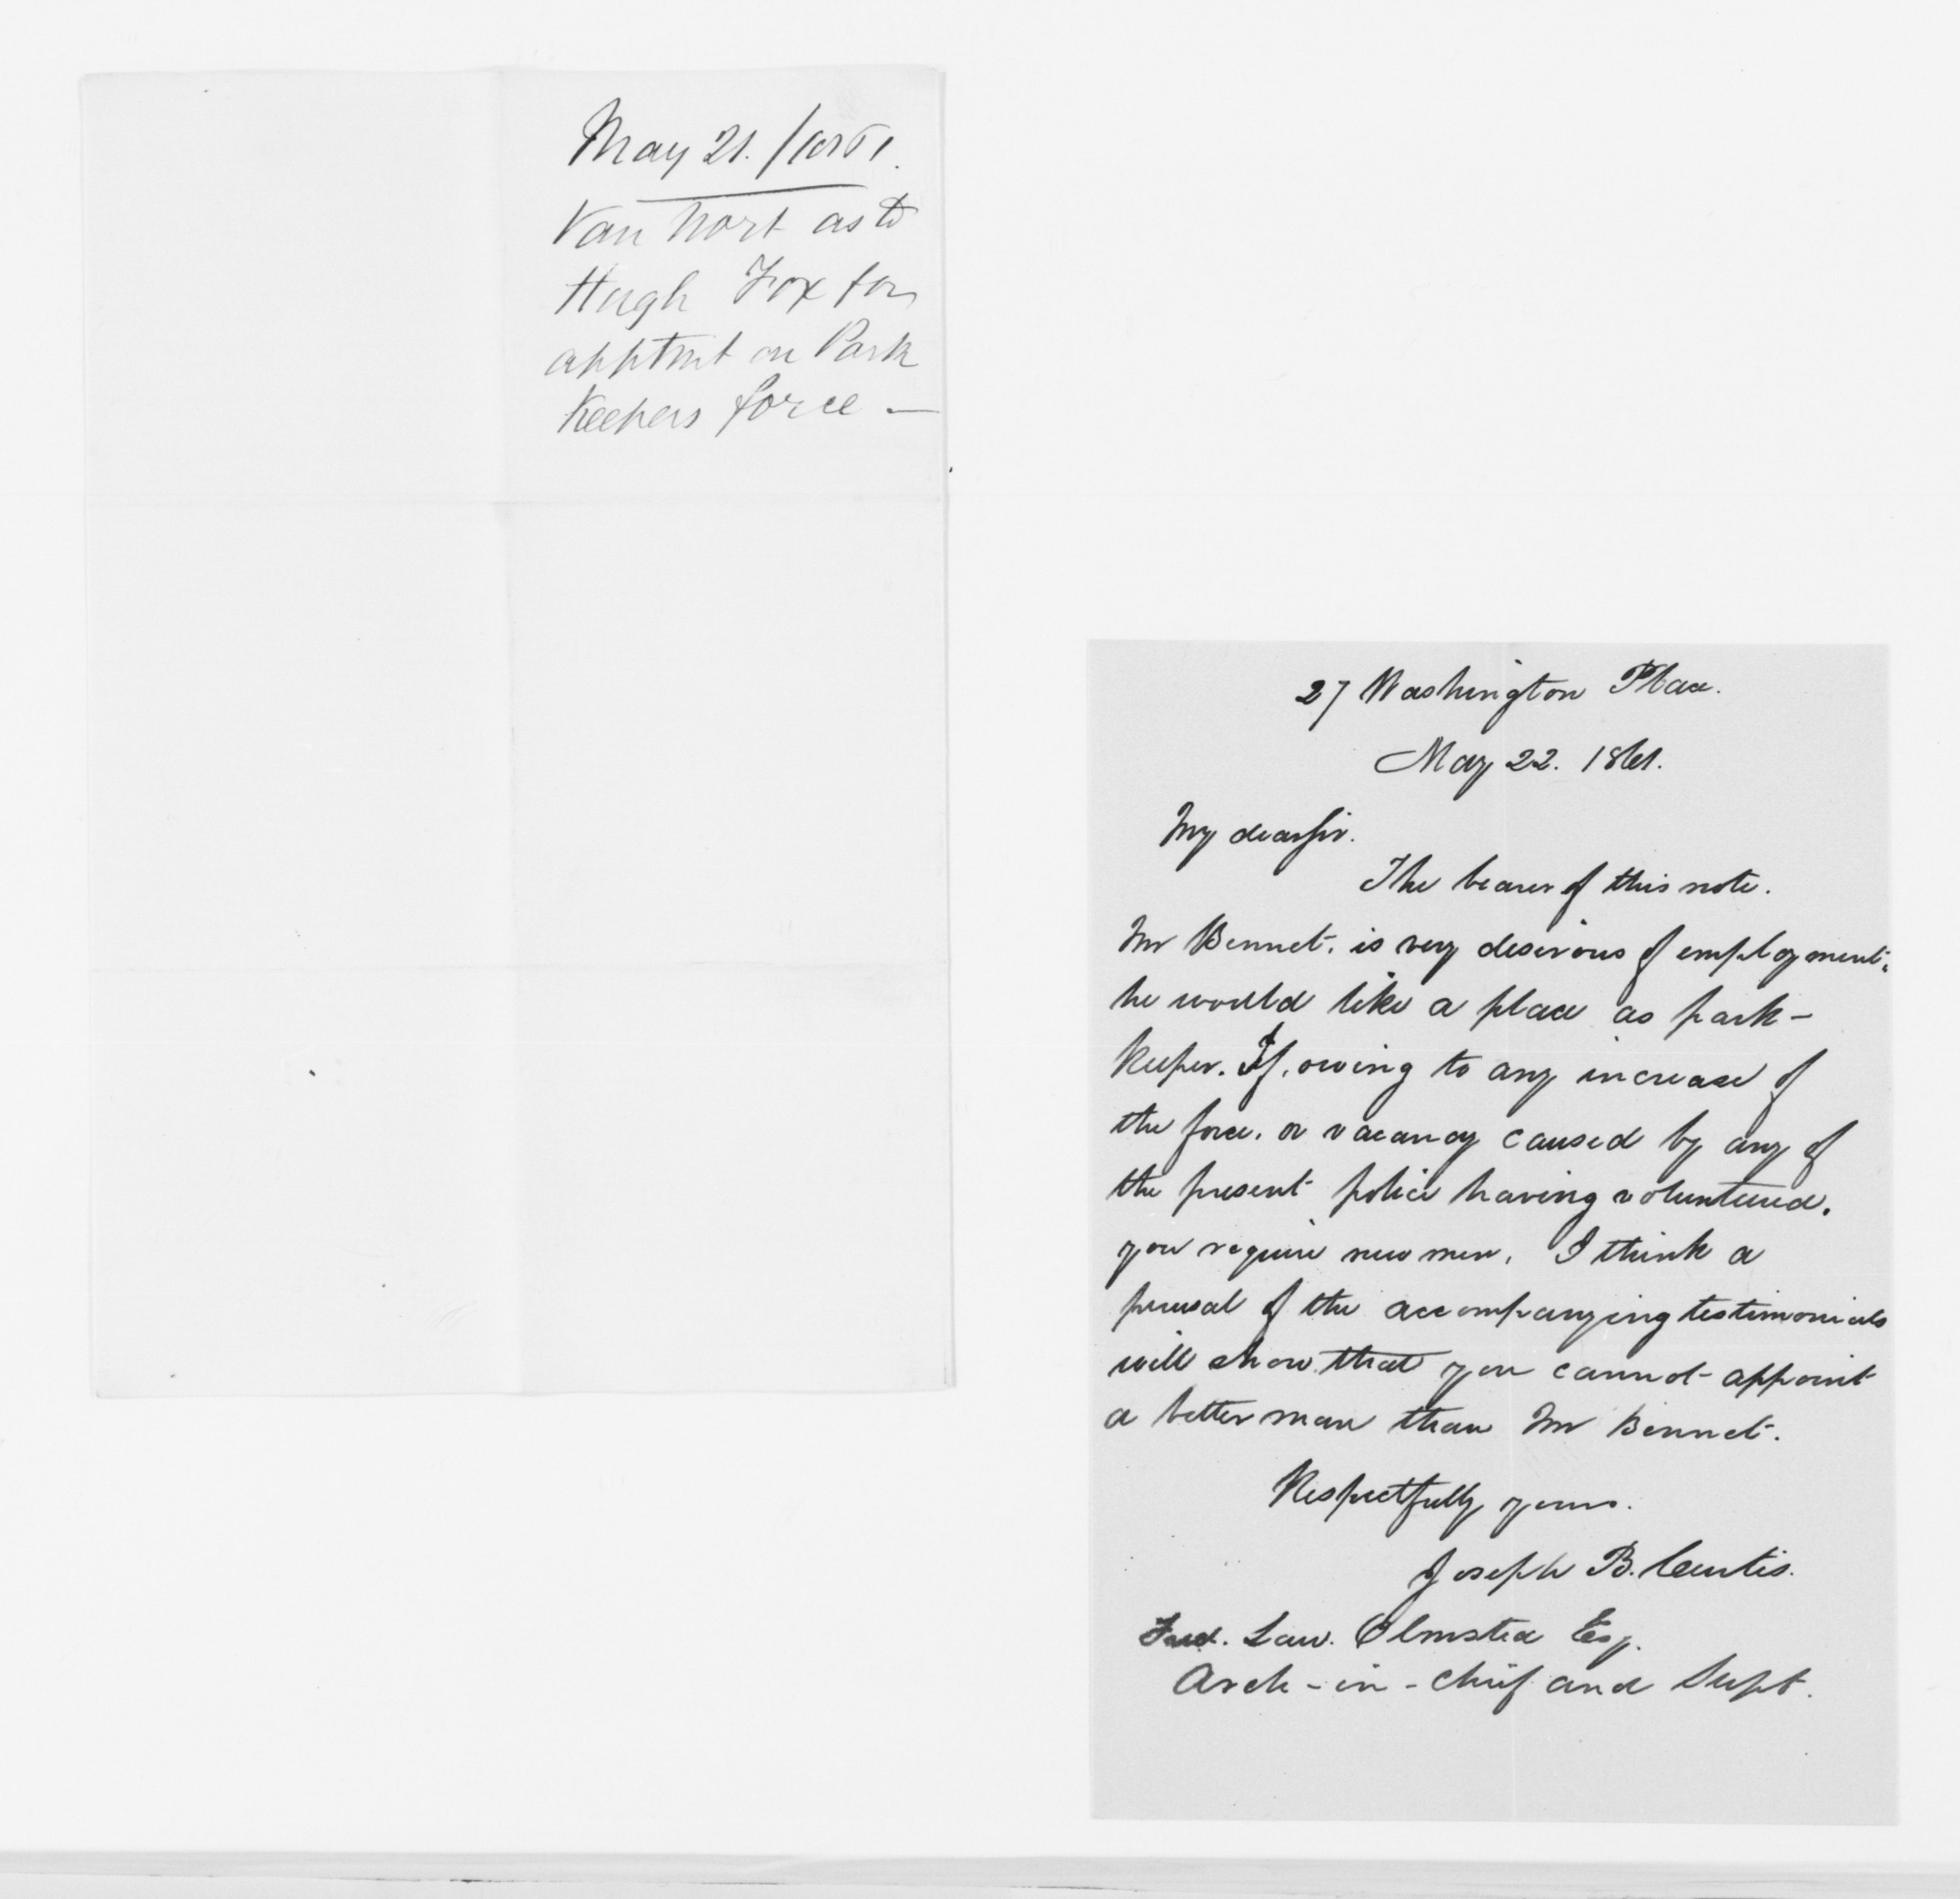 May 21. 1861.
Van Nort as to
Hugh Fox for
apptmt on Park
Keepers force —
27 Washington Place.
May 22. 1861.
My dear Sir.
The bearer of this note.
Mr Bennet. is very desirous of employment.
he would like a place as park-
keeper. If, owing to any increase of
the force. or vacancy caused by any of
the present police having volunteered.
you require new men, I think a
perusal of the accompanying testimonials
will show that you cannot appoint
a better man than Mr Bennet.
Respectfully yours.
Joseph B. Curtis.
Fred. Law. Olmsted Esq.
Arch-in-chief and Supt.